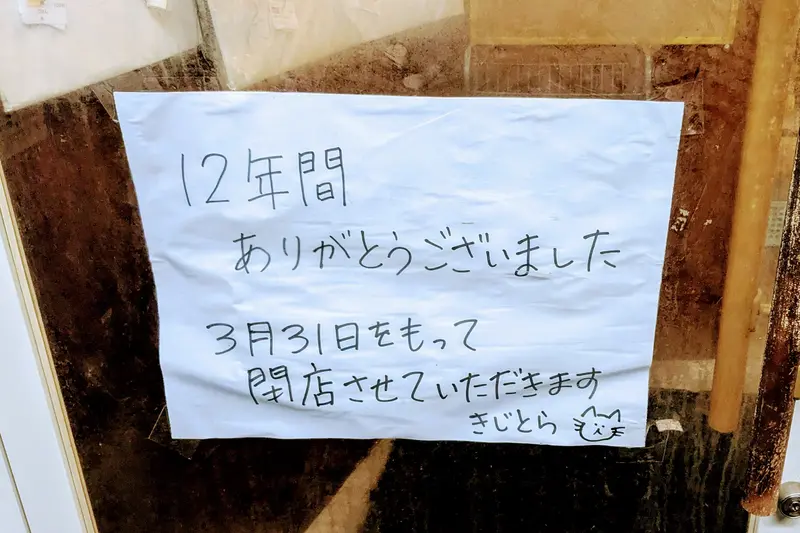 12年間
ありがとうございました
3月31日をもって
閉店させていただきます
きじとら